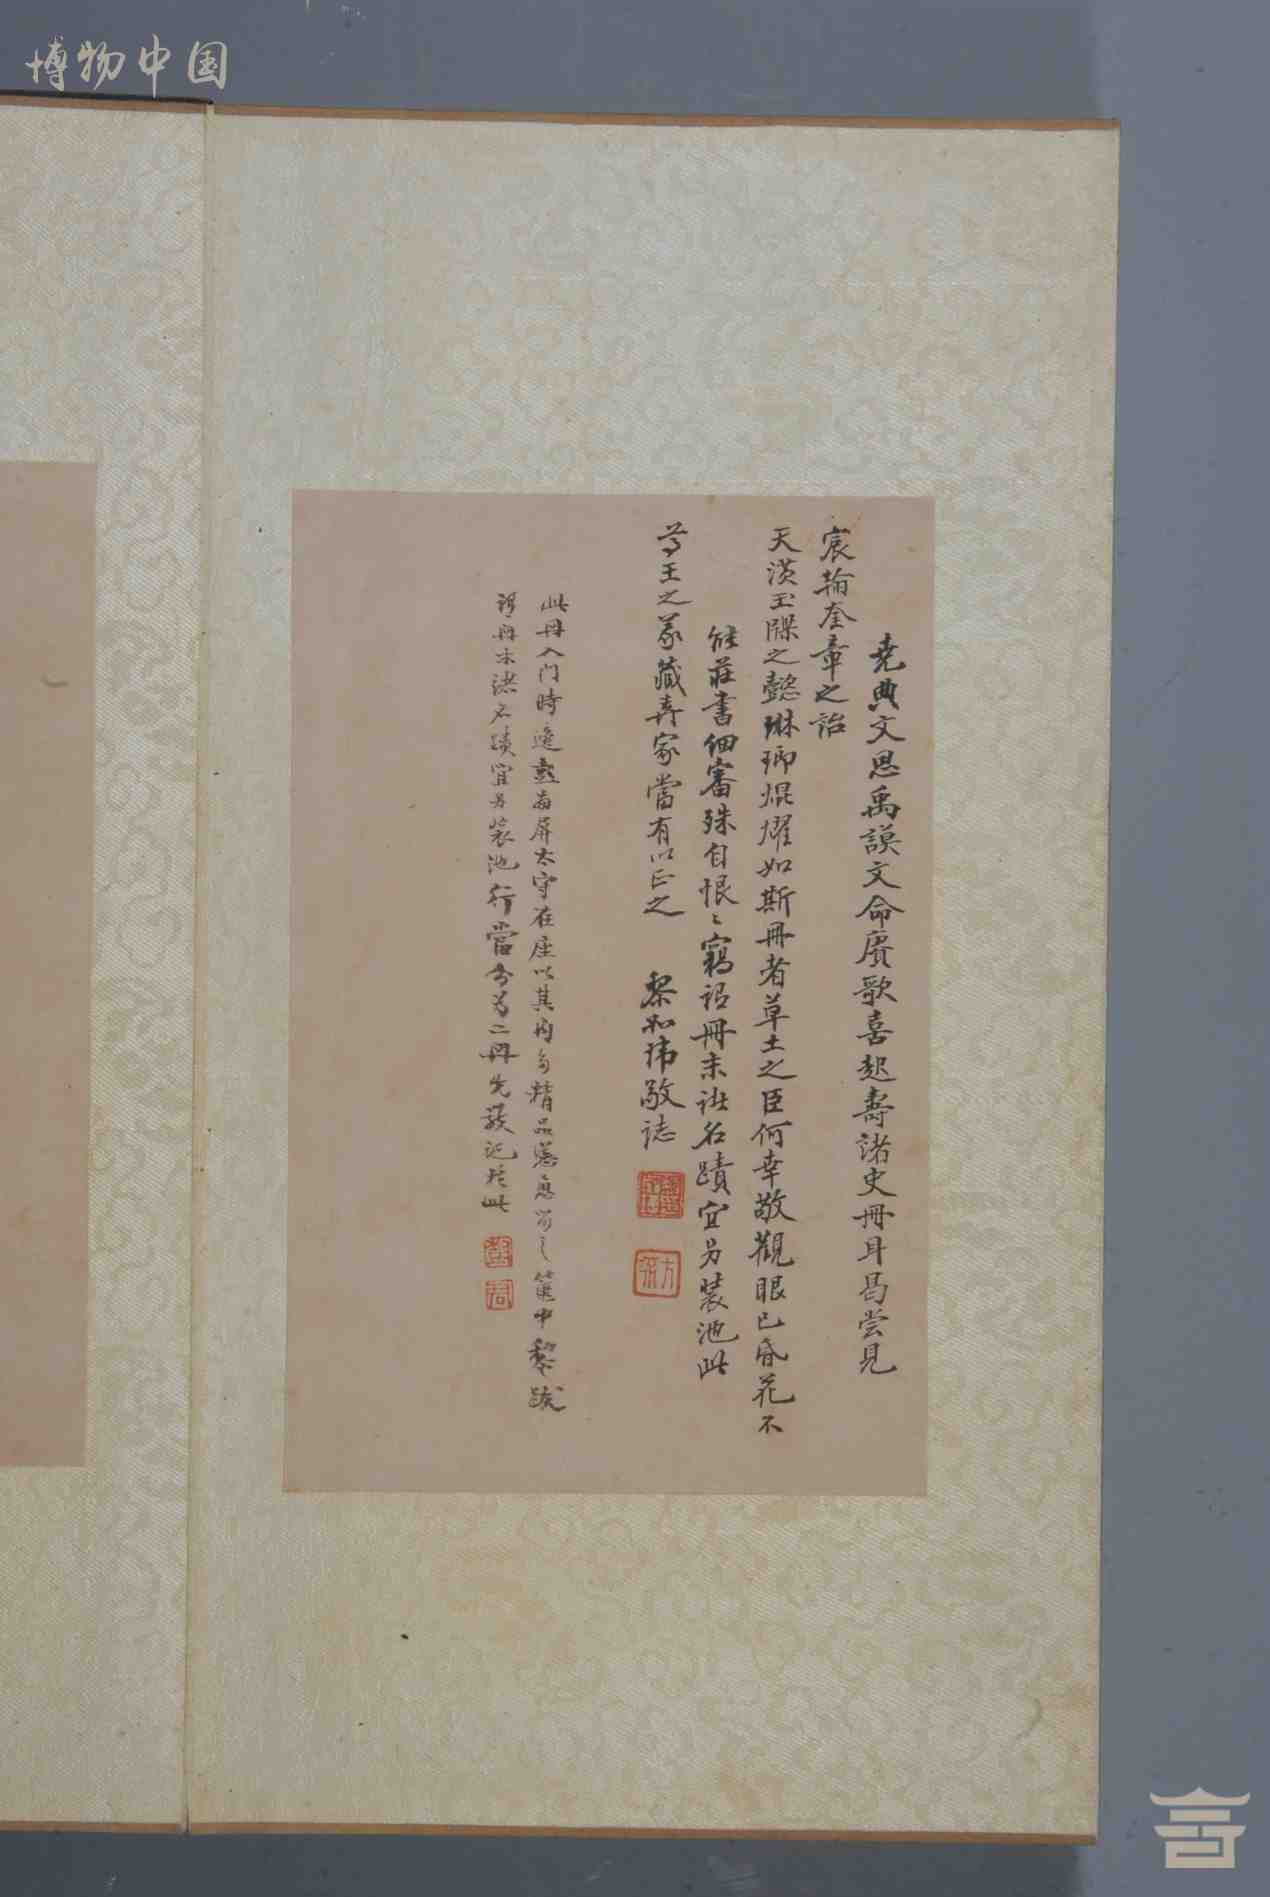 博物中国
堯典文思禹謨文命賡歌喜起壽諸史冊耳曷嘗見
宸翰奎章之詒
天潢玉牒之懿琳琅焜燿如斯冊者草土之臣何幸敬觀眼已昏花不
能莊書細審殊自恨之竊謂冊末諸名蹟宜另裝池此
尊王之義藏弆家當有以正之 黎如瑋敬誌
此冊入門時適南屏太守在座以其內多精品慫恿留之篋中黎跋
謂冊末諸名蹟宜另裝池行當分為二冊先發記於此